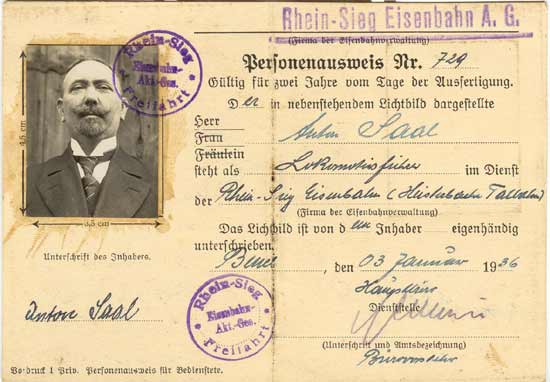 Rhein-Sieg Eisenbahn A. G.
(Firma der Eisenbahnverwaltung)
Personenausweis Nr. 729
Gültig für zwei Jahre vom Tage der Ausfertigung.
Der in nebenstehendem Lichtbild dargestellte
Herr
Frau Anton Saal
Fräulein
steht als Lokomotivführer im Dienst
der Rhein-Sieg Eisenbahn (Heisterbacher Talbahn)
(Firma der Eisenbahnverwaltung)
Das Lichtbild ist von dem Inhaber eigenhändig
unterschrieben.
Beuel, den 03 Januar 1936
Dienststelle
(Unterschrift und Amtsbezeichnung)
Bürovorsteher
4,5 cm
3,5 cm
Unterschrift des Inhabers.
Anton Saal
Rhein-Sieg
Eisenbahn-
Akt.-Ges.
Freifahrt
Rhein-Sieg
Eisenbahn-
Akt.-Ges.
Freifahrt
Vordruck 1 Priv. Personenausweis für Bedienstete.